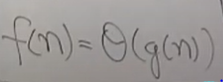 f(n) = Θ(g(n))